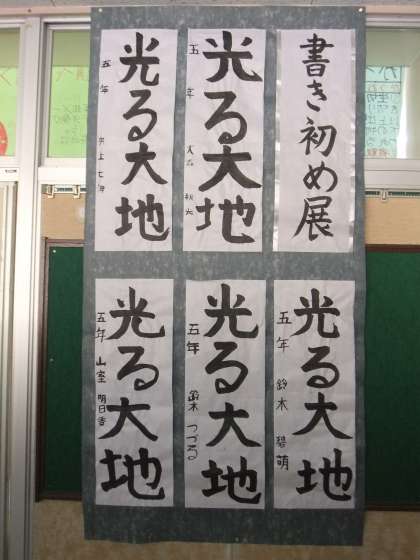 書き初め展
光る大地
五年
光る大地
五年
光る大地
五年 鈴木 碧萌
光る大地
五年 鈴木 つづる
光る大地
五年 山室 明日香